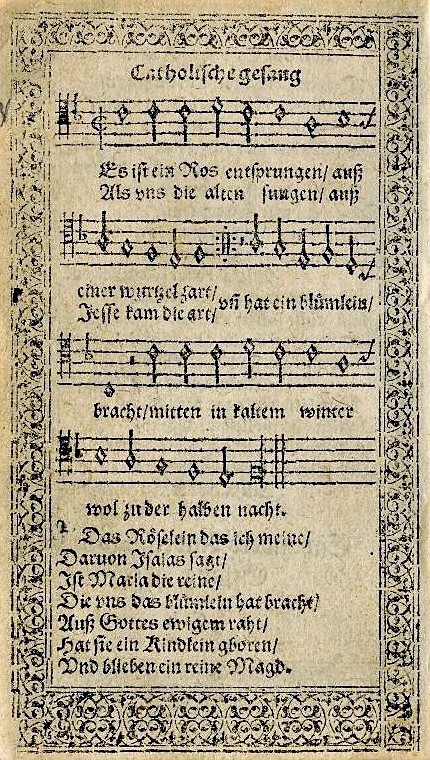 Catholische gesang
Es ist ein Ros entsprungen/ auß
Als vns die alten sungen/ auß
einer wurtzel zart/
Jesse kam die art/ vñ hat ein blůmlein/
bracht/mitten in kaltem winter
wol zu der halben nacht.
2 Das Röselein das ich meine/
Daruon Jsaias sagt/
Jst Maria die reine/
Die vns das blůmlein hat bracht/
Auß Gottes ewigem raht/
Hat sie ein Kindlein gboren/
Vnd blieben ein reine Magd.